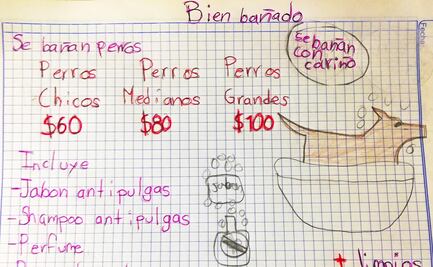 Bien bañado
Fecha
Se bañan perros
se bañan
con
cariño
Perros Perros Perros
Chicos Medianos Grandes
$60 $80 $100
Incluye
-Jabon antipulgas
Jabon
-Shampoo antipulgas
-Perfume
+ limpios